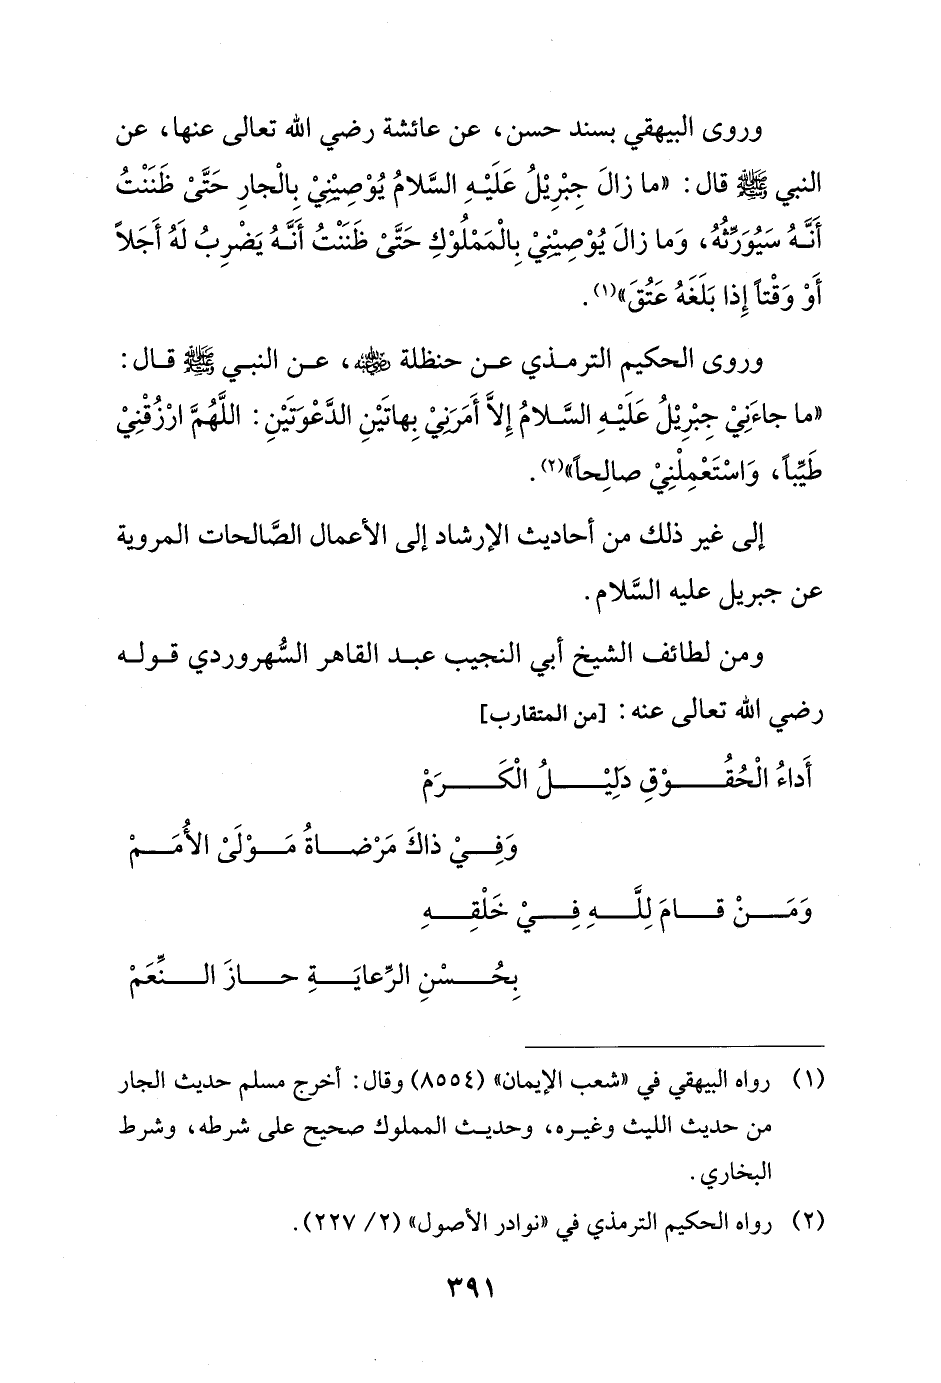 وروى البيهقي بسند حسن، عن عائشة رضي الله تعالى عنها، عن
النبي ﷺ قال: «ما زالَ جِبْرِيْلُ عَلَيْهِ السَّلامُ يُوْصِيْنِيْ بِالْجارِ حَتَّىْ ظَنَنْتُ
أَنَّهُ سَيُوَرِّثُهُ، وَما زالَ يُوْصِيْنِيْ بِالْمَمْلُوْكِ حَتَّىْ ظَنَنْتُ أَنَّهُ يَضْرِبُ لَهُ أَجَلاً
أَوْ وَقْتاً إِذا بَلَغَهُ عَتُقَ»(١).
وروى الحكيم الترمذي عن حنظلة رضي الله عنه، عن النبي ﷺ قال:
«ما جاءَنِيْ جِبْرِيْلُ عَلَيْهِ السَّلامُ إِلاَّ أَمَرَنِيْ بِهاتَيْنِ الدَّعْوَتَيْنِ: اللَّهُمَّ ارْزُقْنِيْ
طَيِّباً، وَاسْتَعْمِلْنِيْ صالِحاً»(٢).
إلى غير ذلك من أحاديث الإرشاد إلى الأعمال الصَّالحات المروية
عن جبريل عليه السَّلام.
ومن لطائف الشيخ أبي النجيب عبد القاهر السُّهروردي قوله
رضي الله تعالى عنه: [من المتقارب]
أَداءُ الْحُقُوْقِ دَلِيْلُ الْكَرَمْ
وَفِيْ ذاكَ مَرْضاةُ مَوْلَىْ الأُمَمْ
وَمَنْ قامَ لِلَّهِ فِيْ خَلْقِهِ
بِحُسْنِ الرِّعايَةِ حازَ النِّعَمْ
(١) رواه البيهقي في «شعب الإيمان» (٨٥٥٤) وقال: أخرج مسلم حديث الجار
من حديث الليث وغيره، وحديث المملوك صحيح على شرطه، وشرط
البخاري.
(٢) رواه الحكيم الترمذي في «نوادر الأصول» (٢/ ٢٢٧).
٣٩١